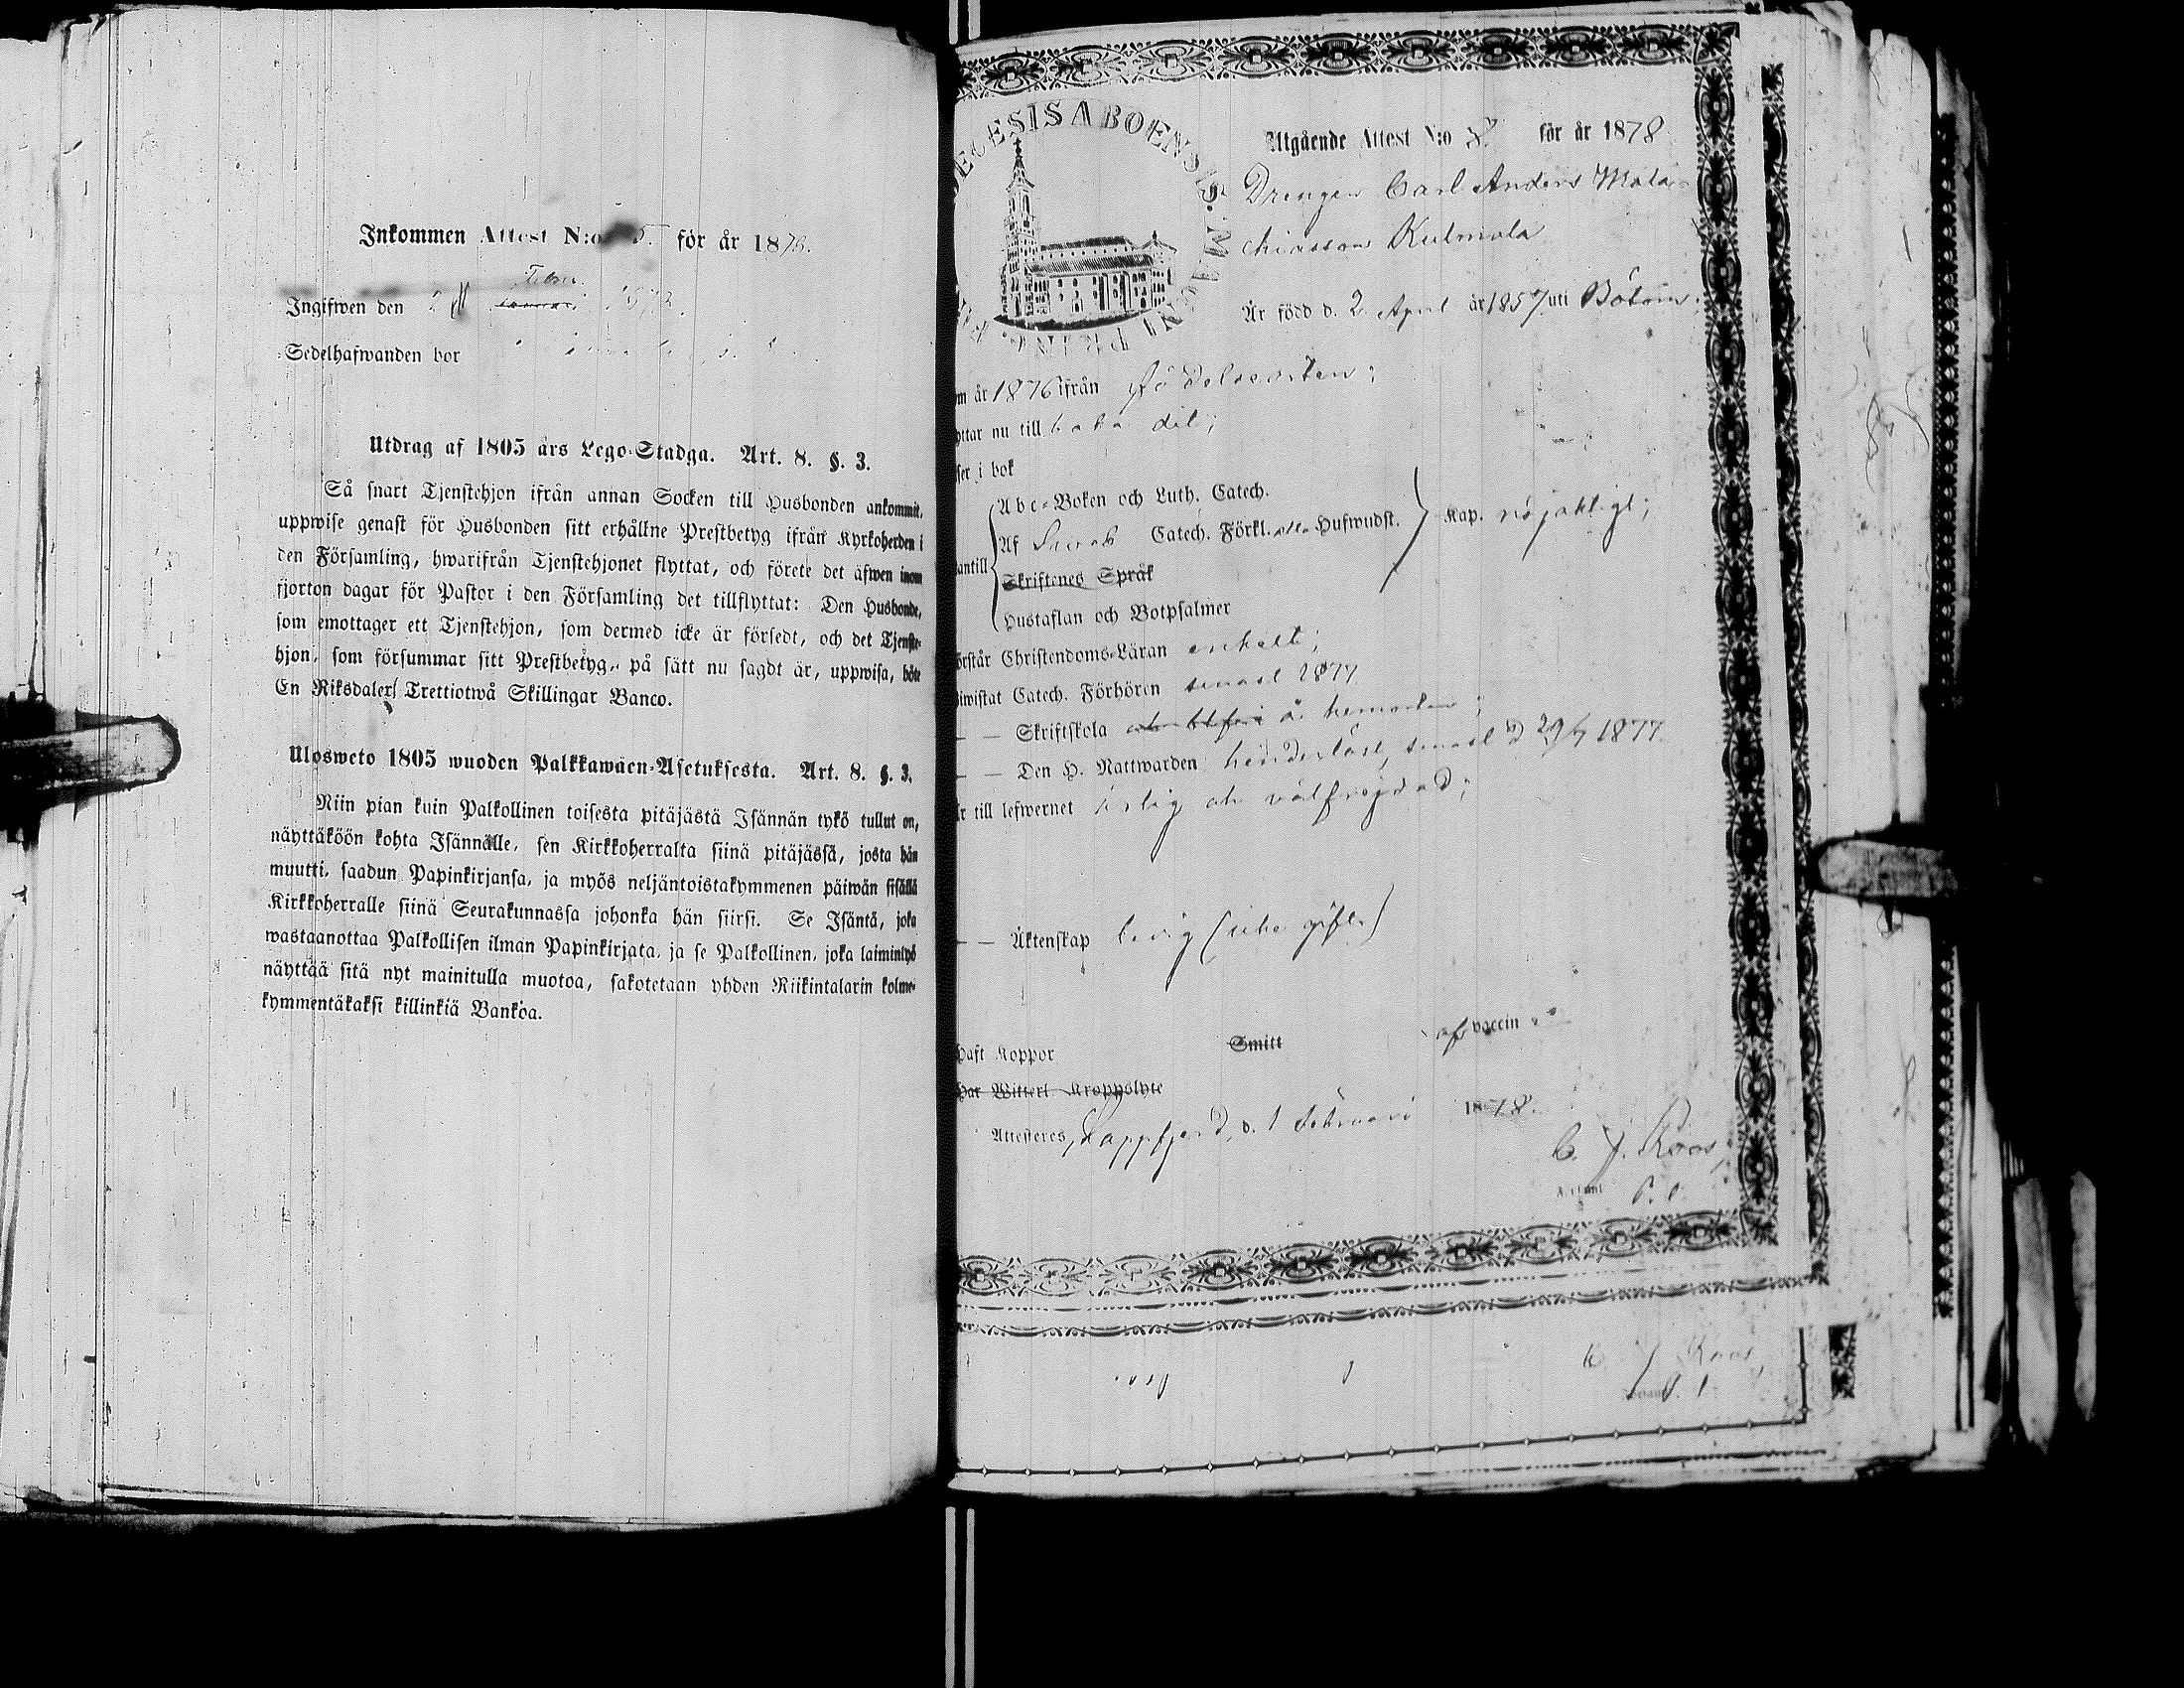 Inkommen Attest N:o 5. för år 1878.
Febru
Ingifwen den
Sedelhafwanden bor
Utdrag af 1805 års Lego-Stadga. Art. 8. §. 3.
Så snart Tjenstehjon ifrån annan Socken till Husbonden ankommit,
uppwise genast för Husbonden sitt erhållne Prestbetyg ifrån Kyrkoherden i
den Församling, hwarifrån Tjenstehjonet flyttat, och förete det äfwen inom
fjorton dagar för Pastor i den Församling det tillflyttat: Den Husbonde,
som emottager ett Tjenstehjon, som dermed icke är försedt, och det Tjenste-
hjon, som försummar sitt Prestbetyg, på sätt nu sagdt är, uppwisa, böte
En Riksdaler Trettiotwå Skillingar Banco.
Ulosweto 1805 wuoden Palkkawäen-Asetuksesta. Art. 8. §. 3.
Niin pian kuin Palkollinen toisesta pitäjästä Isännän tykö tullut on,
näyttäköön kohta Isännälle, sen Kirkkoherralta siinä pitäjässä, josta hän
muutti, saadun Papinkirjansa, ja myös neljäntoistakymmenen päiwän sisällä
Kirkkoherralle siinä Seurakunnassa johonka hän siirsi. Se Isäntä, joka
wastaanottaa Palkollisen ilman Papinkirjata, ja se Palkollinen, joka laiminlyö
näyttää sitä nyt mainitulla muotoa, sakotetaan yhden Riikintalarin kolme-
kymmentäkaksi killinkiä Bankoa.
ECESIS ABOENSIS. M
Utgående Attest N:o 8. för år 1878.
Drengen Carl Anders Mata-
chiasson Kulmala
Är född d. 2 April år 1857 uti Bötom.
m år 1876 ifrån födelseorten;
yttar nu till baka dit;
ser i bok
Abc-Boken och Luth. Catech.
Af Sveb Catech. Förkl. alla Hufwudst.
antill
Kap. nöjaktigt;
Skriftenes Språk
Hustaflan och Botpsalmer
örstår Christendoms-Läran enkelt;
iwistat Catech. Förhören senast 1877
— — Skriftskola å hemorten;
— — Den H. Nattwarden senast d 29/7 1877.
r till lefwernet ärlig och välfrejdad;
— — Äktenskap ledig (icke gift)
haft Koppor Smitt af vaccin
Har Witterl. Kroppslyte
Attesteres, Lappfjerd, d. 1 Februari 1878.
C. J. Roos,
Roos,